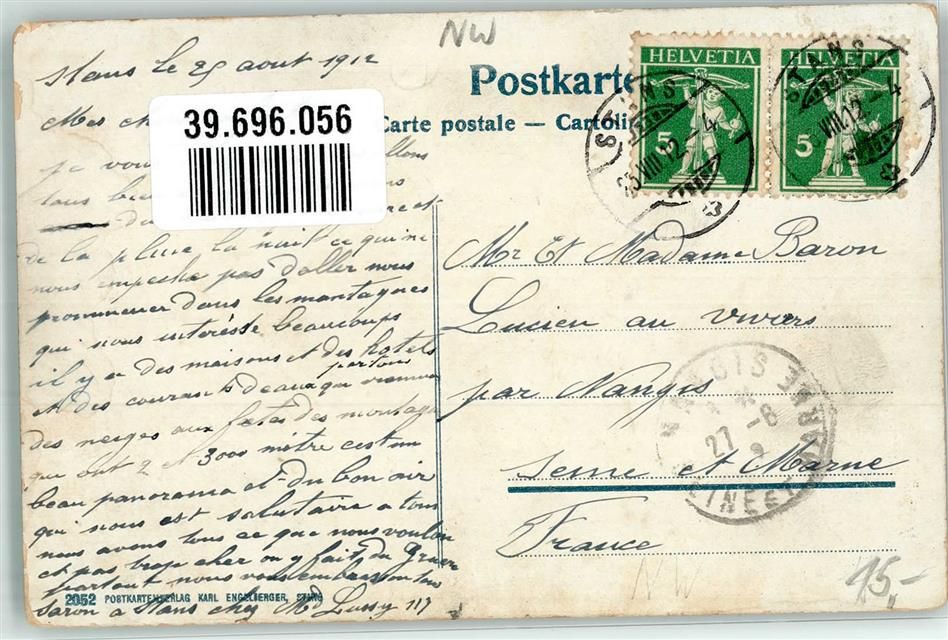 NW
Postkarte
Carte postale — Cartolin
HELVETIA HELVETIA
5 5
STANS
25.VIII.12.-4
STANS
VIII.12.-4
39.696.056
Stans le 25 aout 1912
Mes ch
je vou allons
tous bien
du et
de la pluie la nuit ce qui ne
nous empeche pas d'aller nous
prommener dans les montagnes
qui nous interesse beaucoups
il y a des maisons et des hotels
partous
et des courants d'eaux qui
des neiges aux des montag
que ont 2 et 3000 mètre cest un
beau panorama et du bon air
qui nous est salutaire a tous
nous avons tous ce que nous voulon
et pas trop cher on y fait du
partout nous vous embrasson
Baron a Stans chez Md Lussy 117
2052 POSTKARTENVERLAG KARL ENGELBERGER, STANS
Mr Et Madame Baron
Lucien au vivers
par Nangis
Seine et Marne
France
NANGIS
27 -8
SEINE ET MARNE
NW
15,-